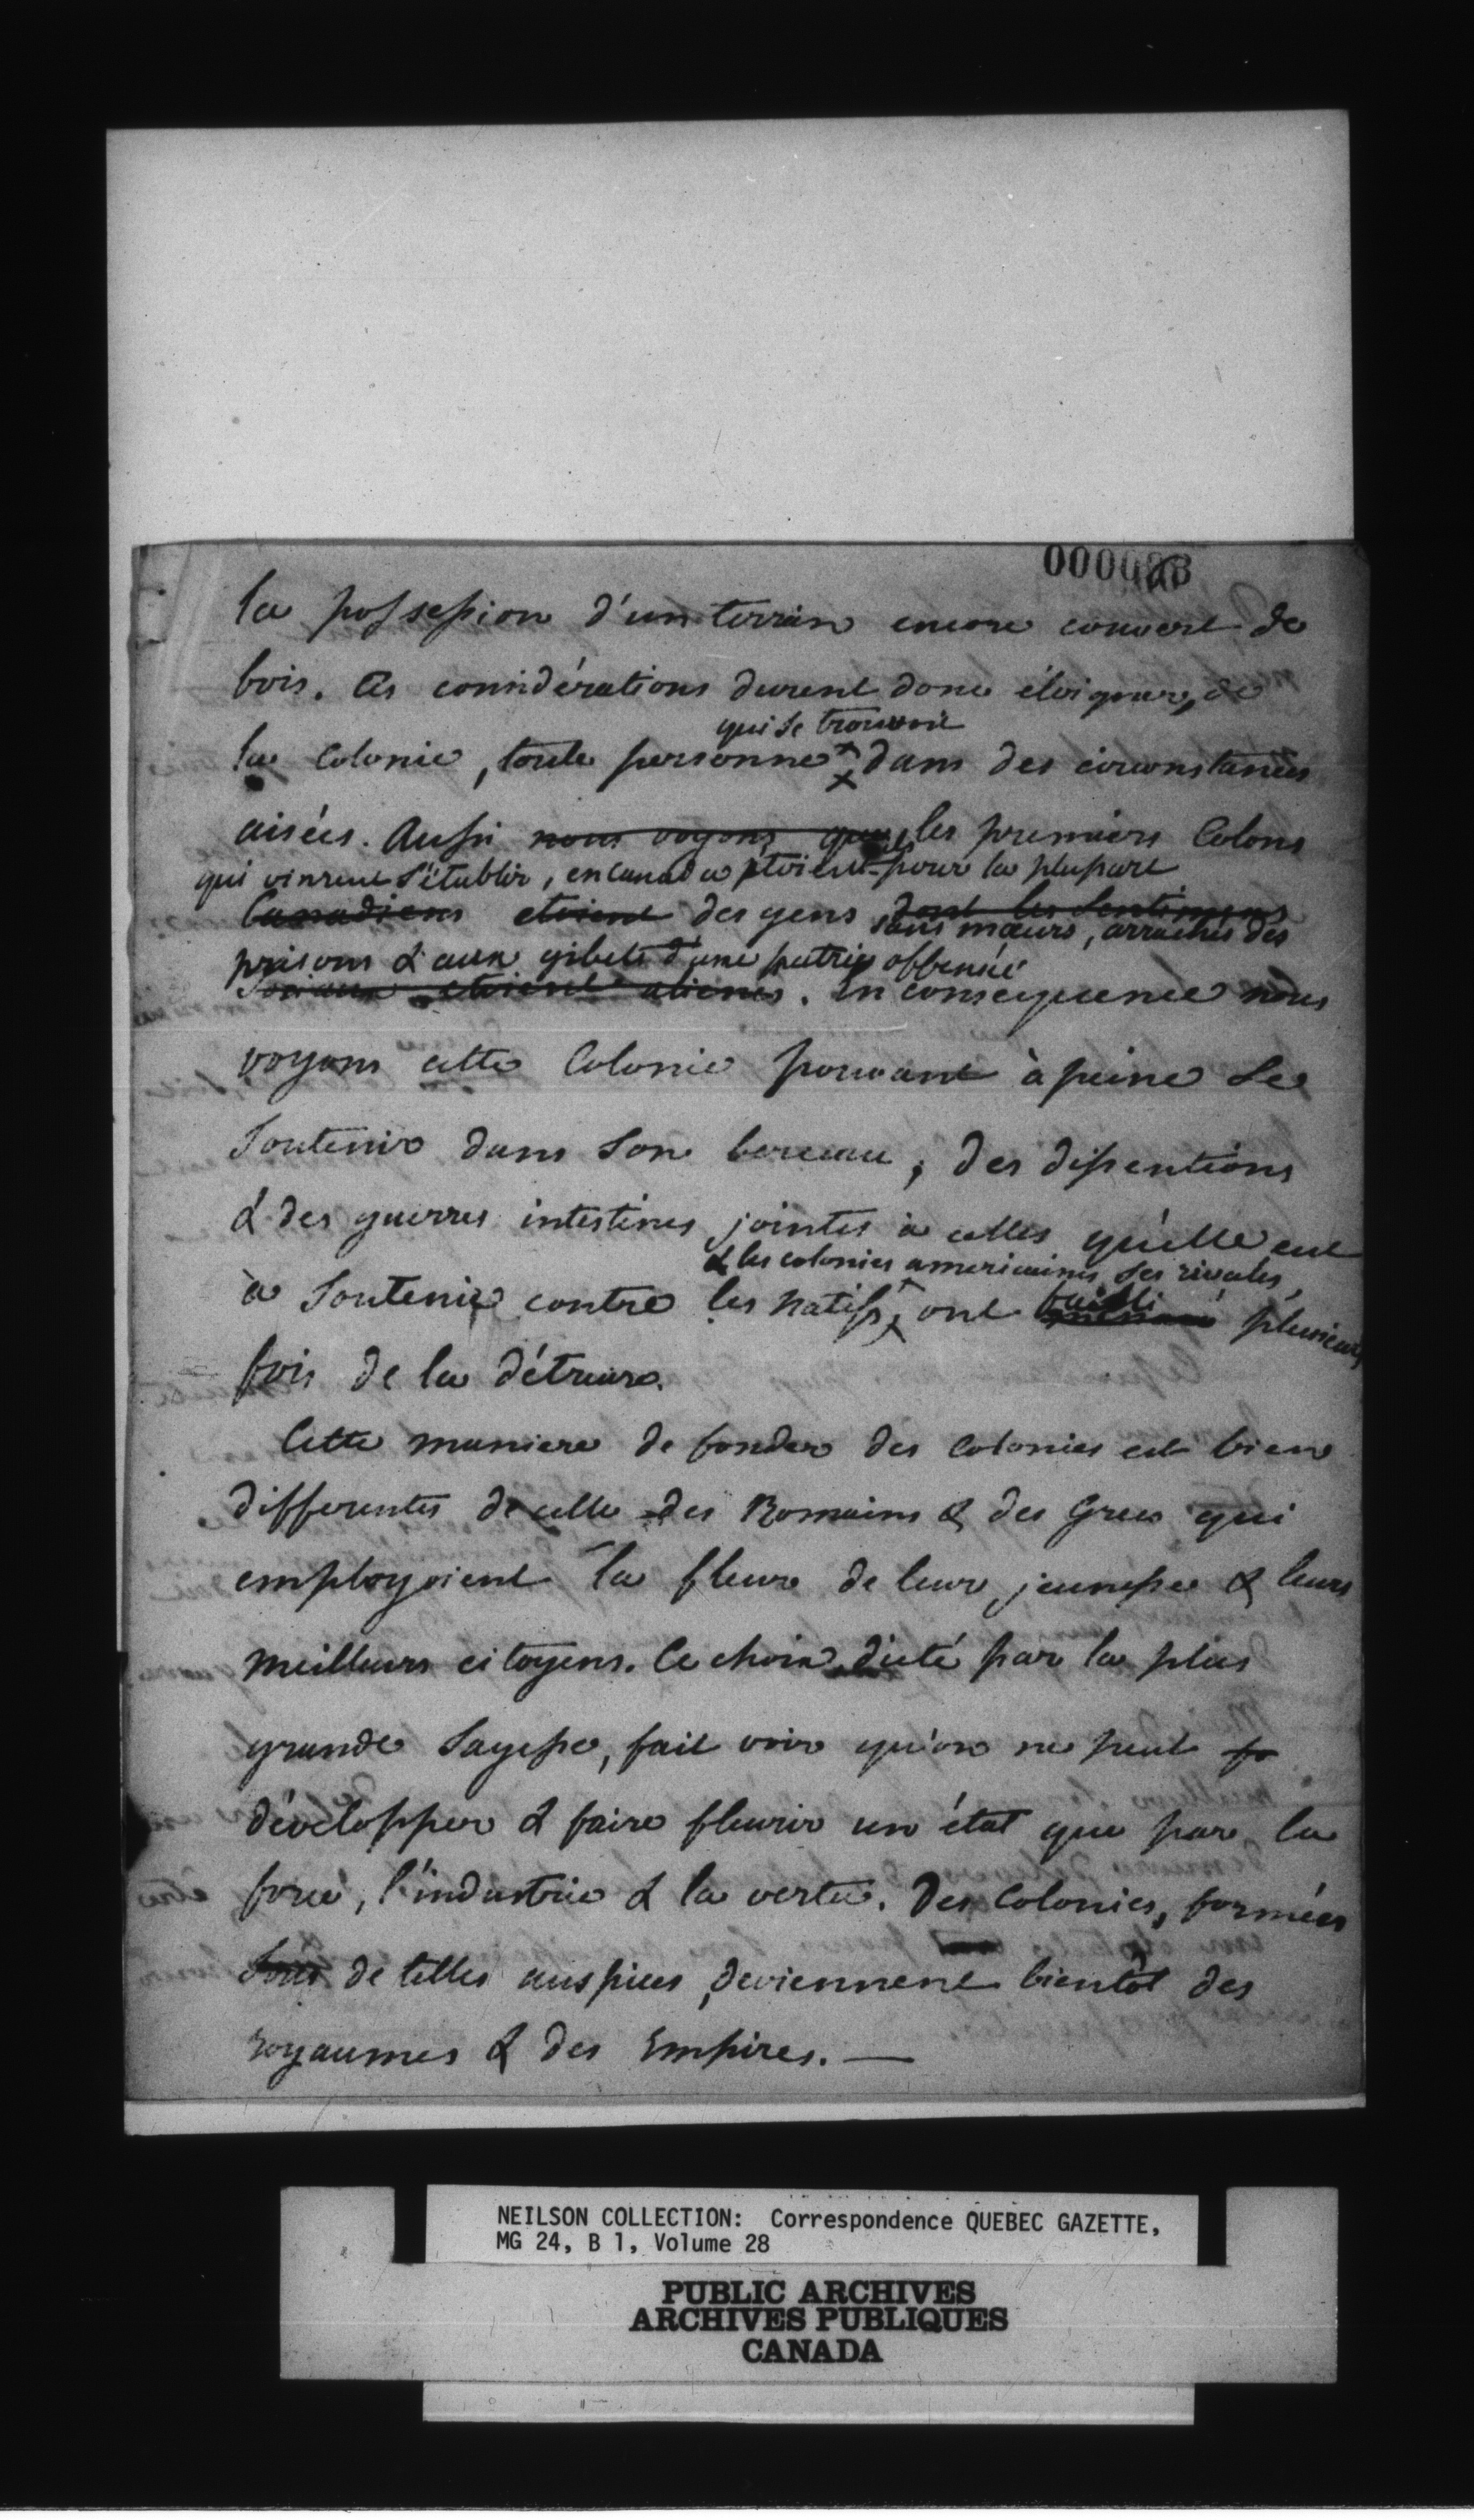 la possession d'un terrein encore couvert de
bois. Ces considérations durent donc éloigner, de
qui se trouvoit
la Colonie, toute personne dans des circonstances
aisées. Aussi nous voyons que les premiers Colons
qui vinrent s'établir, en Canada étoient pour la plupart
Canadiens etoient des gens dont les sentimens
sans mœurs, arrachés des
prisons & aux gibets d'une patrie offensée
étoient aliénés. En consequence nous
voyons cette Colonie pouvant à peine se
soutenir dans son berceau; des dissentions
& des guerres intestines jointes à celles qu'elle eut
& les colonies americaines ses rivales,
à soutenir contre les natifs, ont failli plusieurs
fois de la détruire.
Cette maniere de fonder des Colonies est bien
differentes de celle des Romains & des Grecs qui
employoient la fleur de leur jeunesse & leurs
meilleurs citoyens. Ce choix, dicté par la plus
grande sagesse, fait voir qu'on ne peut fo
développer & faire fleurir un état que par la
force, l'industrie & la vertu. Des Colonies, formées
sous de telles auspices, deviennent bientôt des
royaumes & des Empires. —
NEILSON COLLECTION: Correspondence QUEBEC GAZETTE,
MG 24, B 1, Volume 28
PUBLIC ARCHIVES
ARCHIVES PUBLIQUES
CANADA